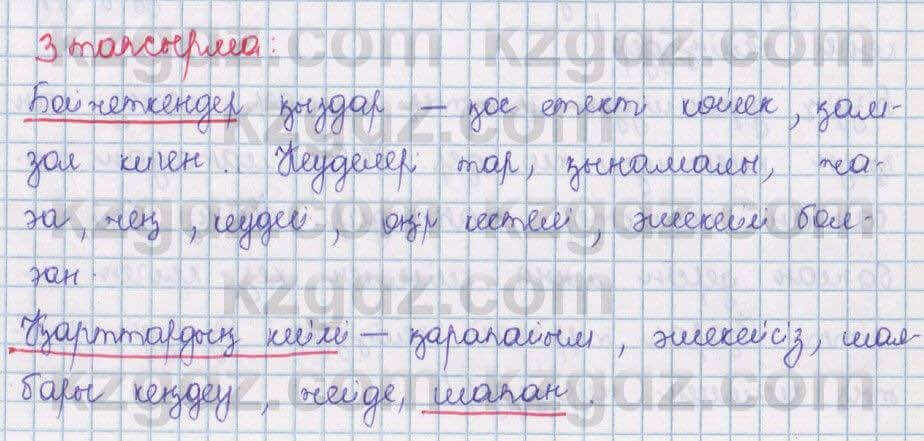 3 тапсырма:
Бойжеткендер қыздар – қос етекті көйлек, қам-
зол киген. Кеуделер тар, қынамалы, жа-
ға, жең, кеудей, өңір кестелі, әшекейлі бол-
ған.
Қарттардың киімі – қарапайым, әшекейсіз, шал-
бары кеңдеу, жейде, шапан.
kzgdz.com